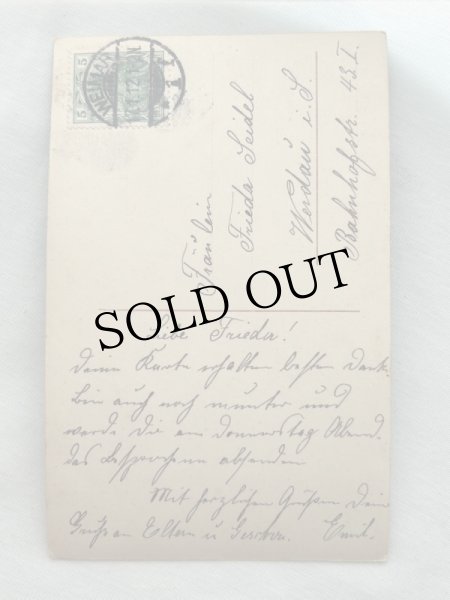 5 5
Fräulein
Frieda Seidel
Werdau i. S.
Bahnhofstr. 43. I.
SOLD OUT
Liebe Frieda!
Deine Karte erhalten besten Dank.
Bin auch noch munter und
werde Dir am Donnerstag Abend
das Besprochene absenden
Mit herzlichen Grüßen Dein
Gruß an Eltern u. Emil.